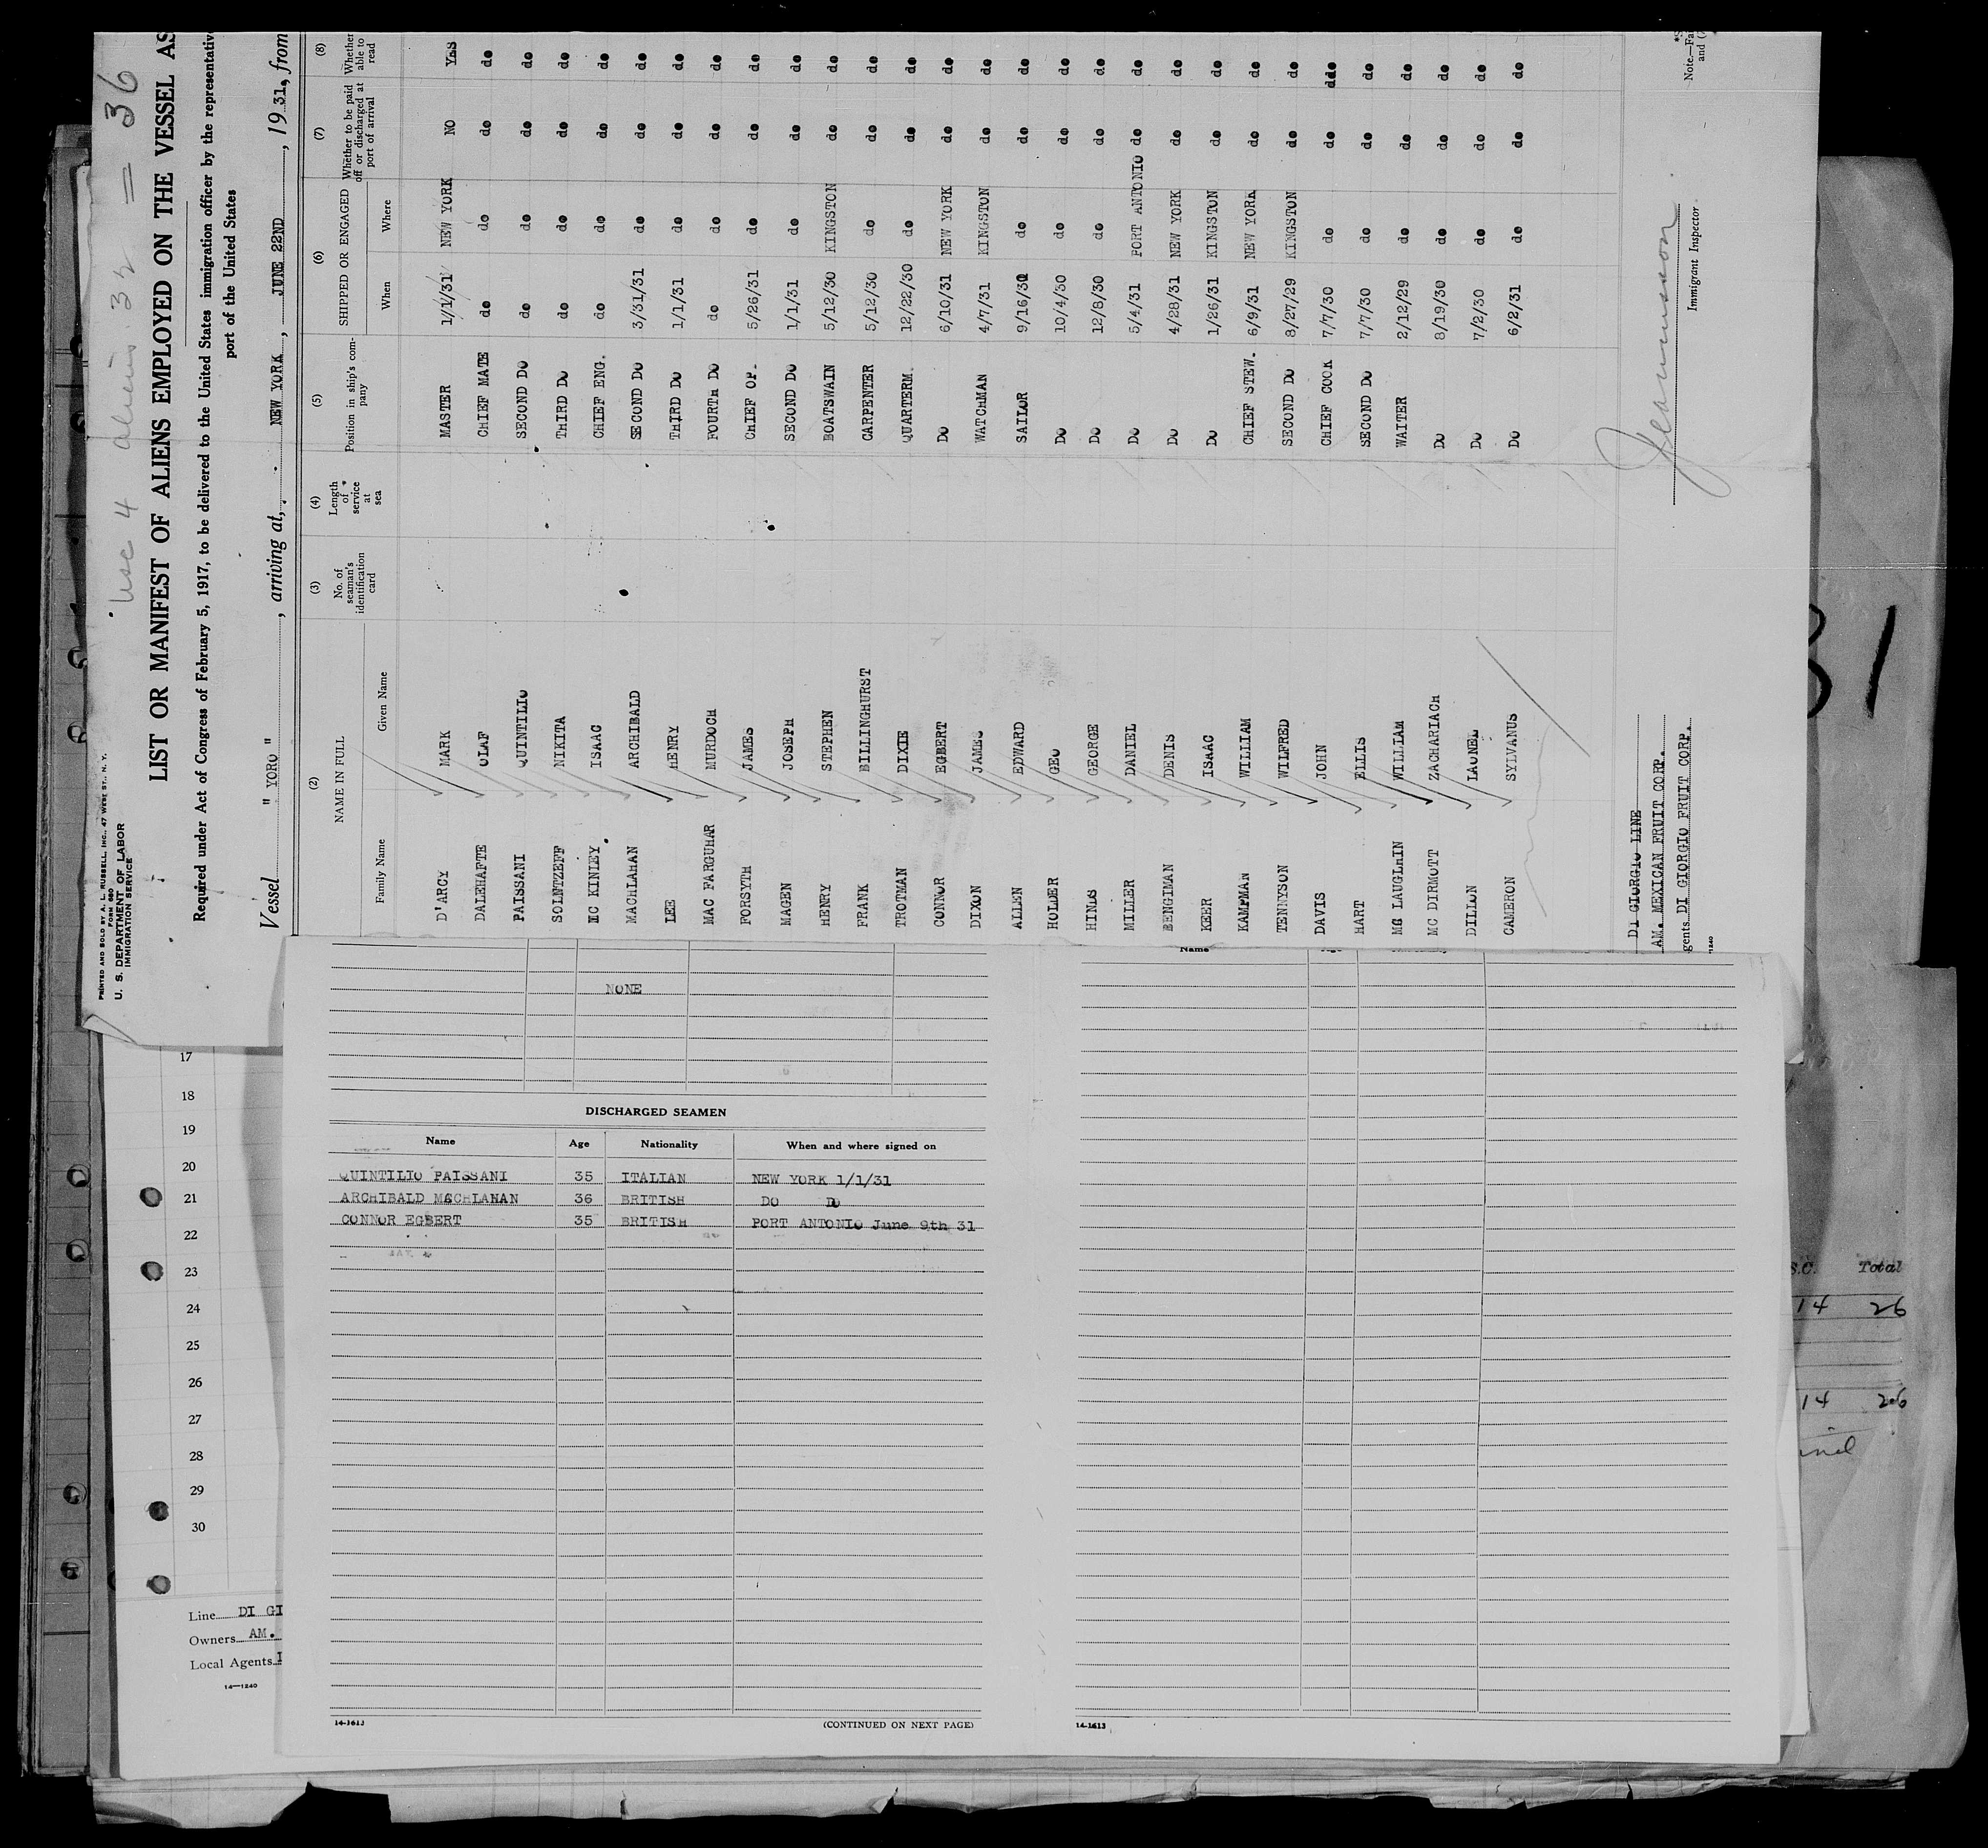 usc 4 aliens 32 = 36
PRINTED AND SOLD BY A. L. RUSSELL, INC., 47 WEST ST., N. Y.
FORM 680
U. S. DEPARTMENT OF LABOR
IMMIGRATION SERVICE
LIST OR MANIFEST OF ALIENS EMPLOYED ON THE VESSEL AS
Required under Act of Congress of February 5, 1917, to be delivered to the United States immigration officer by the representativ
port of the United States
Vessel " YORO " , arriving at, NEW YORK , JUNE 22ND , 19 31, from
(2) (3) (4) (5) (6) (7) (8)
NAME IN FULL No. of seaman's identification card Length of * service at sea Position in ship's company SHIPPED OR ENGAGED Whether to be paid off or discharged at port of arrival Whether able to read
Family Name Given Name When Where
D'ARCY MARK MASTER 1/1/31 NEW YORK NO YES
DALEHAFTE OLAF CHIEF MATE do do do do
PAISSANI QUINTILIO SECOND DO do do do do
SOLNTZEFF NIKITA THIRD DO do do do do
MC KINLEY ISAAC CHIEF ENG. do do do do
MACHLAHAN ARCHIBALD SECOND DO 3/31/31 do do do
LEE HENRY THIRD DO 1/1/31 do do do
MAC FARGUHAR MURDOCH FOURTH DO do do do do
FORSYTH JAMES CHIEF OP. 5/26/31 do do do
MAGEN JOSEPH SECOND DO 1/1/31 do do do
HENRY STEPHEN BOATSWAIN 5/12/30 KINGSTON do do
FRANK BILLINGHURST CARPENTER 5/12/30 do do do
TROTMAN DIXIE QUARTERM. 12/22/30 do do do
CONNOR EGBERT DO 6/10/31 NEW YORK do do
DIXON JAMES WATCHMAN 4/7/31 KINGSTON do do
ALLEN EDWARD SAILOR 9/16/30 do do do
HOLDER GEO DO 10/4/30 do do do
HINDS GEORGE DO 12/8/30 do do do
MILLER DANIEL DO 5/4/31 PORT ANTONIO do do
BENGIMAN DENIS DO 4/28/31 NEW YORK do do
KEER ISAAC DO 1/26/31 KINGSTON do do
KAMPMAN WILLIAM CHIEF STEW. 6/9/31 NEW YORK do do
TENNYSON WILFRED SECOND DO 8/27/29 KINGSTON do do
DAVIS JOHN CHIEF COOK 7/7/30 do do ddo
HART ELLIS SECOND DO 7/7/30 do do do
MG LAUGLHIN WILLIAM WAITER 2/12/29 do do do
MC DIRMOTT ZACHARIACH DO 8/19/30 do do do
DILLON LAUNEL DO 7/2/30 do do do
CAMERON SYLVANUS DO 6/2/31 do do do
DI GIORGIO LINE
AM. MEXICAN FRUIT CORP.
gents DI GIORGIO FRUIT CORP.
1240
Immigrant Inspector
Note.—Fai
and (7
NONE
Name
DISCHARGED SEAMEN
Name Age Nationality When and where signed on
QUINTILIO PAISSANI 35 ITALIAN NEW YORK 1/1/31
ARCHIBALD MACHLAHAN 36 BRITISH DO DO
CONNOR EGBERT 35 BRITISH PORT ANTONIO June 9th 31
14-1613
(CONTINUED ON NEXT PAGE)
14-1613
17
18
19
20
21
22
23
24
25
26
27
28
29
30
Line DI GI
Owners AM.
Local Agents
14—1240
31
S.C. Total
14 26
14 26